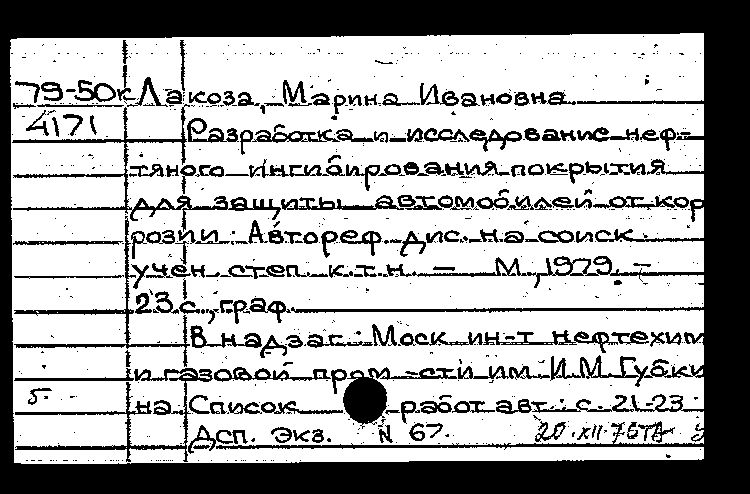 79-50к Лакоза, Марина Ивановна
4171 Разработка и исследование неф-
тяного ингибированния покрытия
для защиты автомобилей от кор
розии. Автореф дис. на соиск.
учен. степ. к.т.н. — М, 1979. —
23 с., граф.
В надзаг.: Моск ин-т нефтехим
и газовой пром-сти им И.М. Губки
5. на Список работ авт.: с. 21-23.
Дсп. Экз. N 67. 20.XII.79